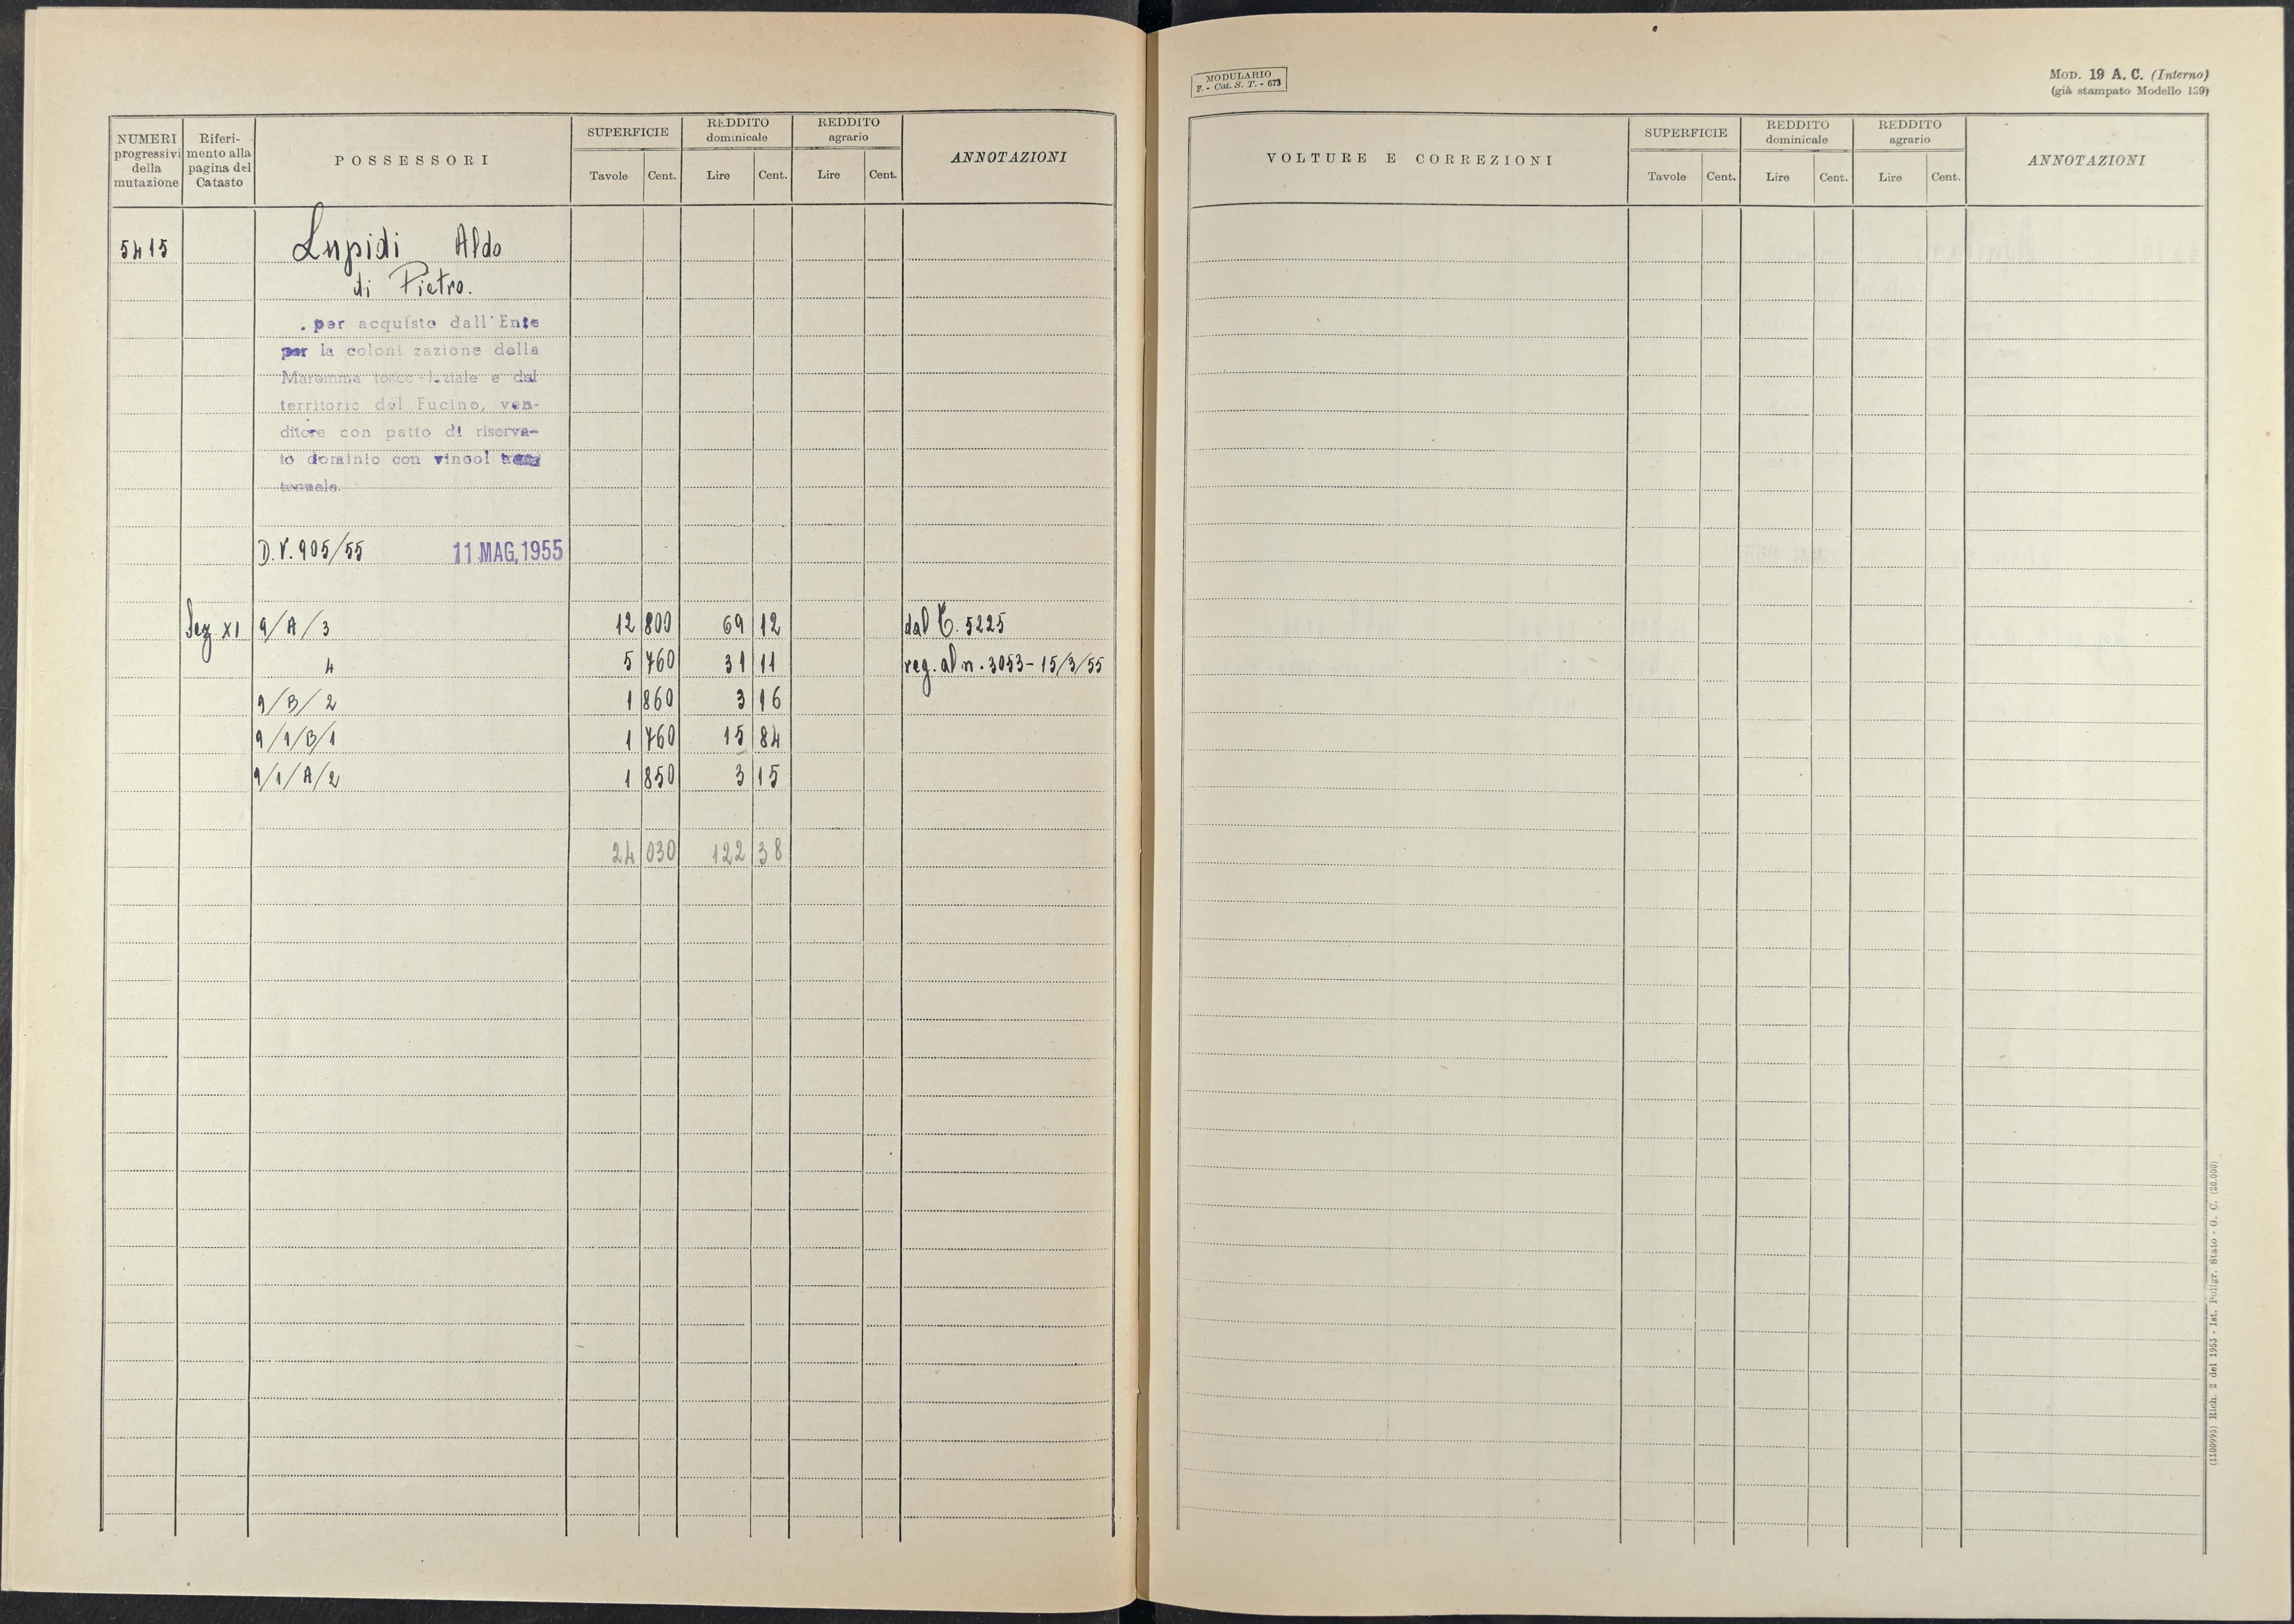 NUMERI progressivi della mutazione
Riferi-mento alla pagina del Catasto
POSSESSORI
SUPERFICIE
Tavole Cent.
REDDITO dominicale
Lire Cent.
REDDITO agrario
Lire Cent.
ANNOTAZIONI
5415 Lupidi Aldo
di Pietro.
per acquisto dall'Ente
per la coloni zazione della
Maremma tosco-laziale e del
territorio del Fucino, ven-
ditore con patto di riserva-
to dominio con vincol
D.V. 905/55 11 MAG, 1955
Sez. XI 9/A/3 12 800 69 12 dal C. 5225
4 5 760 31 11 reg. al n. 3053 - 15/3/55
9/B/2 1 860 3 16
9/1/B/1 1 760 15 84
9/1/A/2 1 850 3 15
24 030 122 38
MODULARIO
F. - Cat. S. T. - 673
MOD. 19 A. C. (Interno)
(già stampato Modello 139)
VOLTURE E CORREZIONI
SUPERFICIE
Tavole Cent.
REDDITO dominicale
Lire Cent.
REDDITO agrario
Lire Cent.
ANNOTAZIONI
(1100995) Rich. 2 del 1953 - Ist. Poligr. Stato - G. C. (20.000)